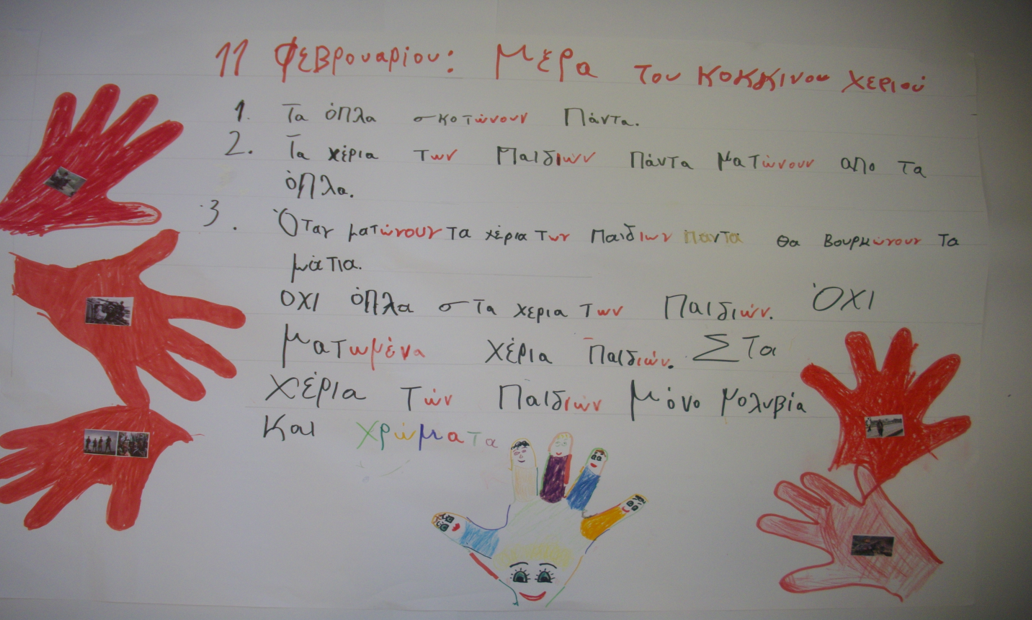 11 Φεβρουαρίου: Μερα του κοκκινου χεριού
1. Τα όπλα σκοτώνουν Πάντα.
2. Τα χέρια των Παιδιών Πάντα ματώνουν απο τα
όπλα.
3. Όταν ματώνουν τα χέρια των Παιδιων Πάντα θα βουρκώνουν τα
μάτια.
ΟΧΙ όπλα στα χερια των Παιδιών. ΌΧΙ
ματωμένα χέρια Παιδιών. Στα
χέρια τών Παιδιών μόνο μολυβία
και χρώματα